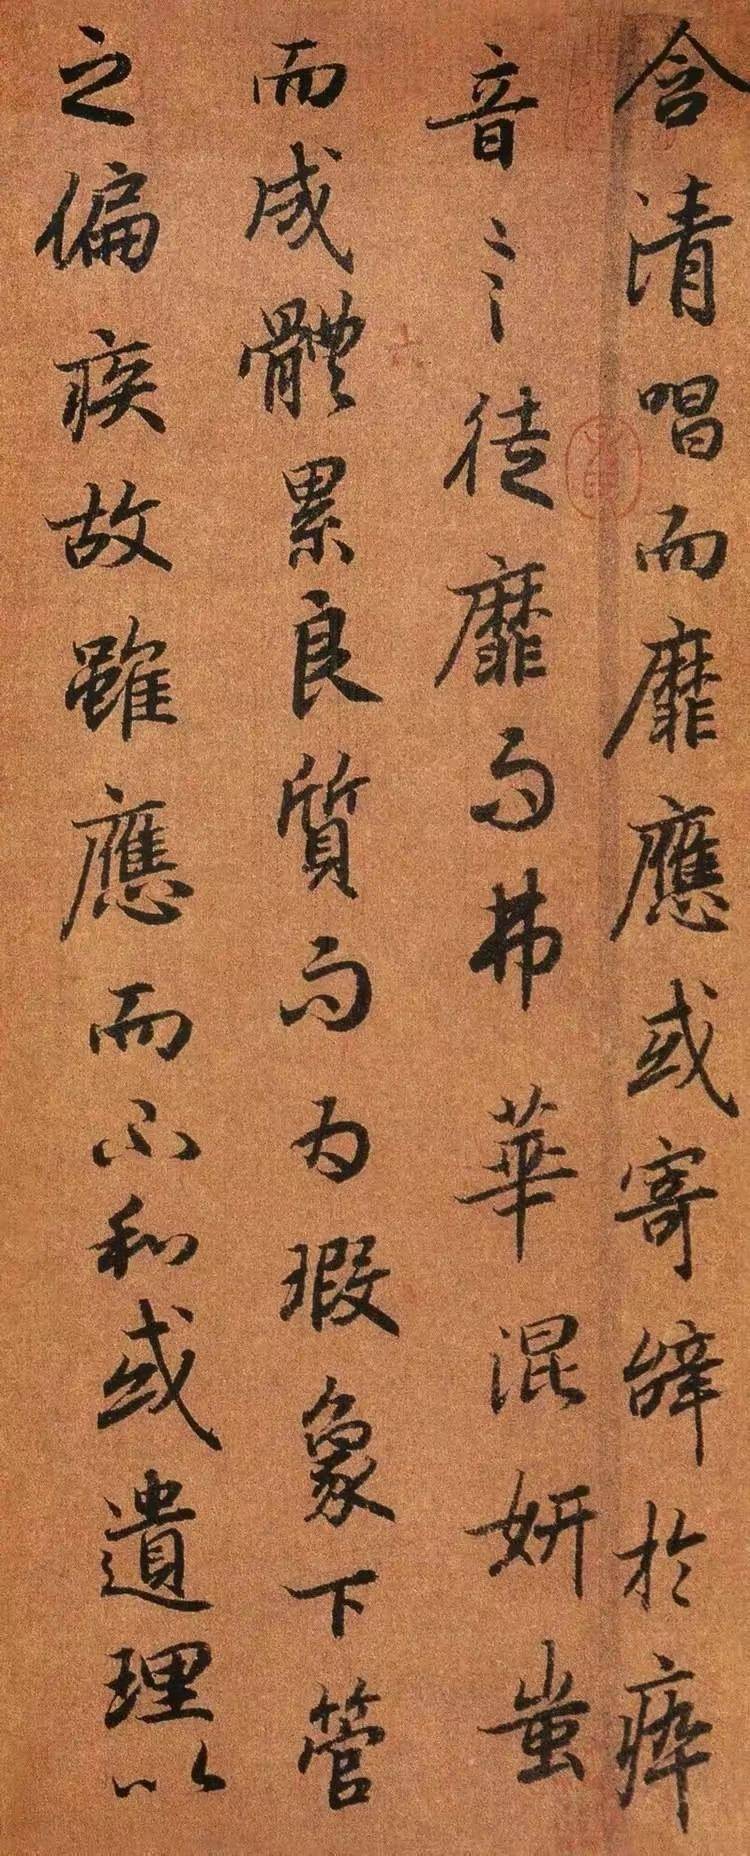 含清唱而靡應或寄辭於瘁
音言徒靡而弗華混妍蚩
而成體累良質而為瑕象下管
之偏疾故雖應而不和或遺理以